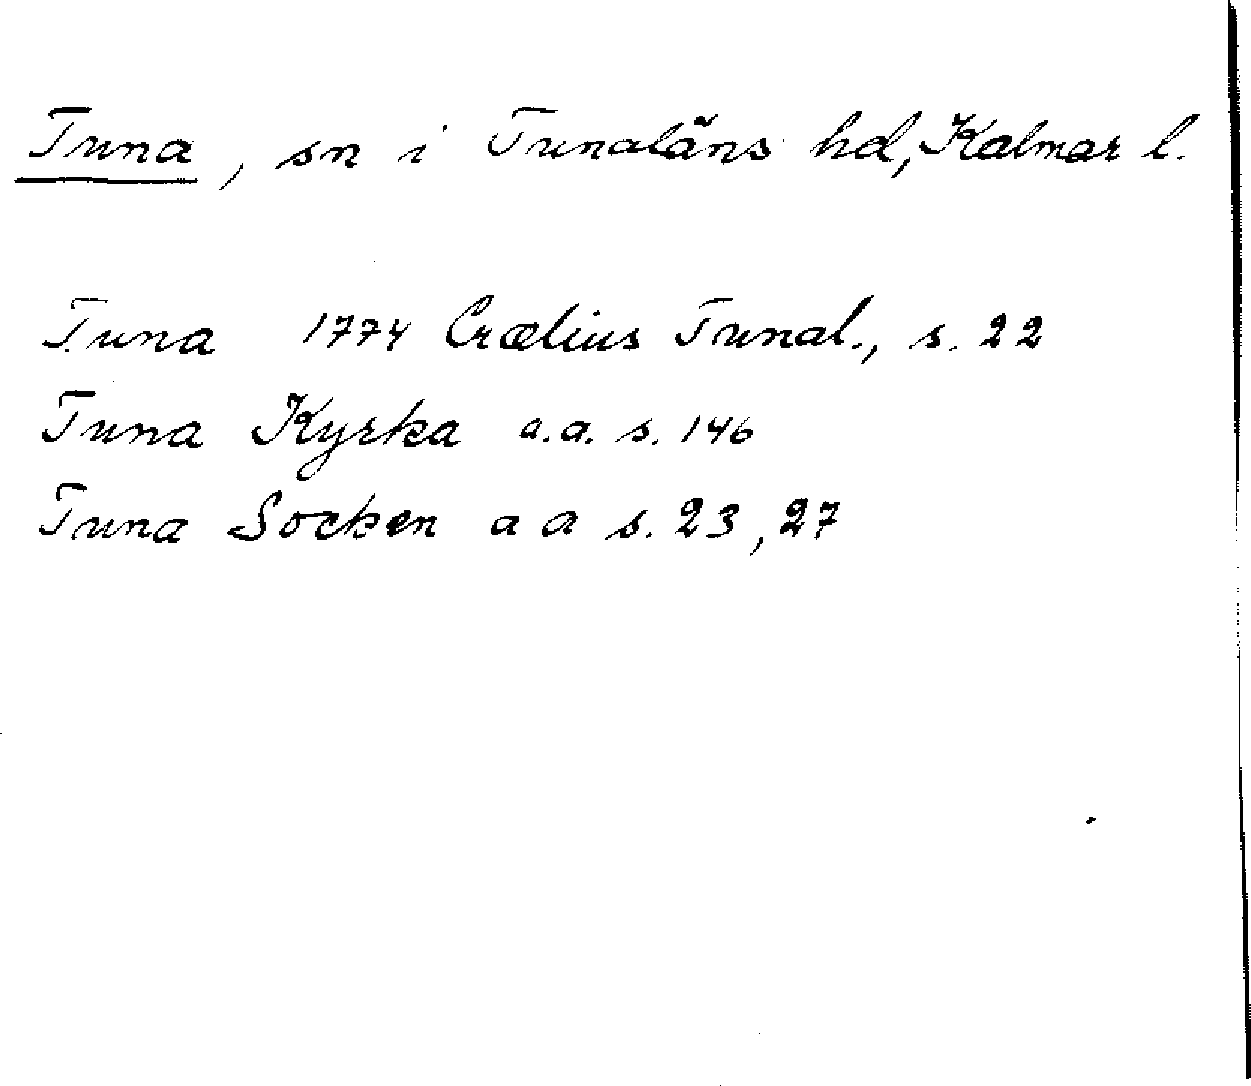 Tuna, sn i Tunaläns hd, Kalmar l.
Tuna 1774 Crælius Tunal., s. 22
Tuna Kyrka a.a. s. 146
Tuna Socken a a s. 23, 27